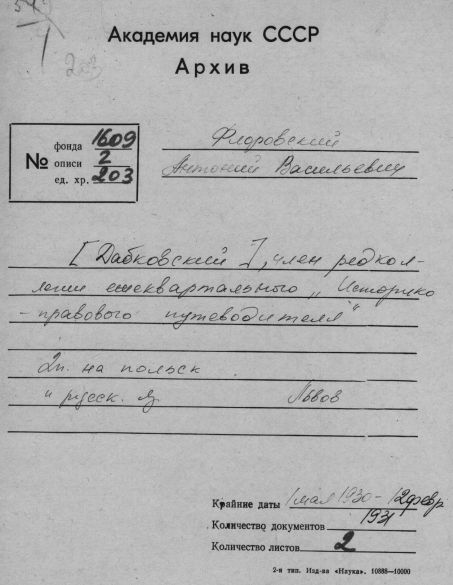 203
Академия наук СССР
Архив
№
фонда 1609
описи 2
ед. хр. 203
Флоровский
Антоний Васильевич
[Дабковский], член редкол-
легии ежеквартального „Историко
-правового путеводителя"
2п. на польск
и русск. яз. Львов
Крайние даты 1 мая 1930 - 12 февр
1931
Количество документов
Количество листов 2
2-я тип. Изд-ва «Наука». 10388—10000